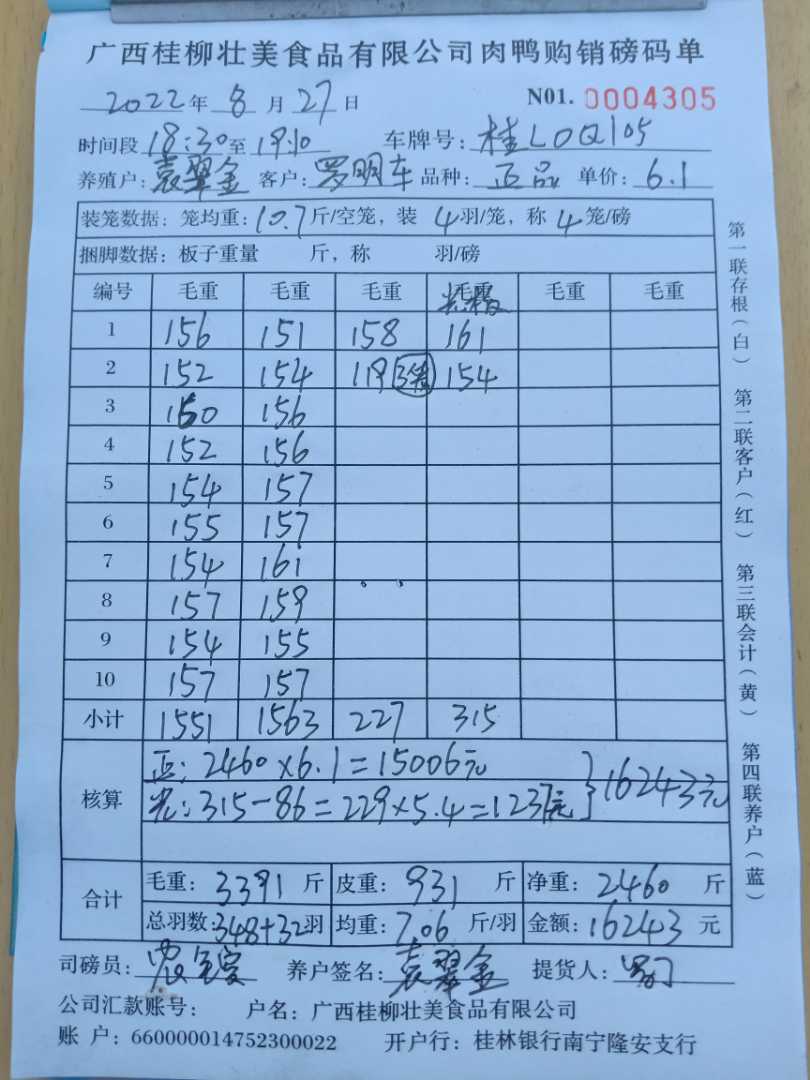 广西桂柳壮美食品有限公司肉鸭购销磅码单
2022年8月27日 N01. 0004305
时间段 18:30至 19:10 车牌号: 桂L0Q105
养殖户: 袁翠金 客户: 罗明车 品种: 正品 单价: 6.1
装笼数据: 笼均重: 10.7斤/空笼, 装 4羽/笼, 称 4笼/磅
捆脚数据: 板子重量 斤, 称 羽/磅
编号 毛重 毛重 毛重 毛重 毛重 毛重
1 156 151 158 161
2 152 154 119 154
3 150 156
4 152 156
5 154 157
6 155 157
7 154 161
8 157 159
9 154 155
10 157 157
小计 1551 1563 227 315
核算
正: 2460×6.1=15006元
光: 315-86=229×5.4=1237元 }16243元
合计
毛重: 3391斤 皮重: 931斤 净重: 2460斤
总羽数: 348+32羽 均重: 7.06斤/羽 金额: 16243元
司磅员: 养户签名: 袁翠金 提货人:
公司汇款账号: 户名: 广西桂柳壮美食品有限公司
账 户: 660000014752300022 开户行: 桂林银行南宁隆安支行
第一联存根(白) 第二联客户(红) 第三联会计(黄) 第四联养户(蓝)